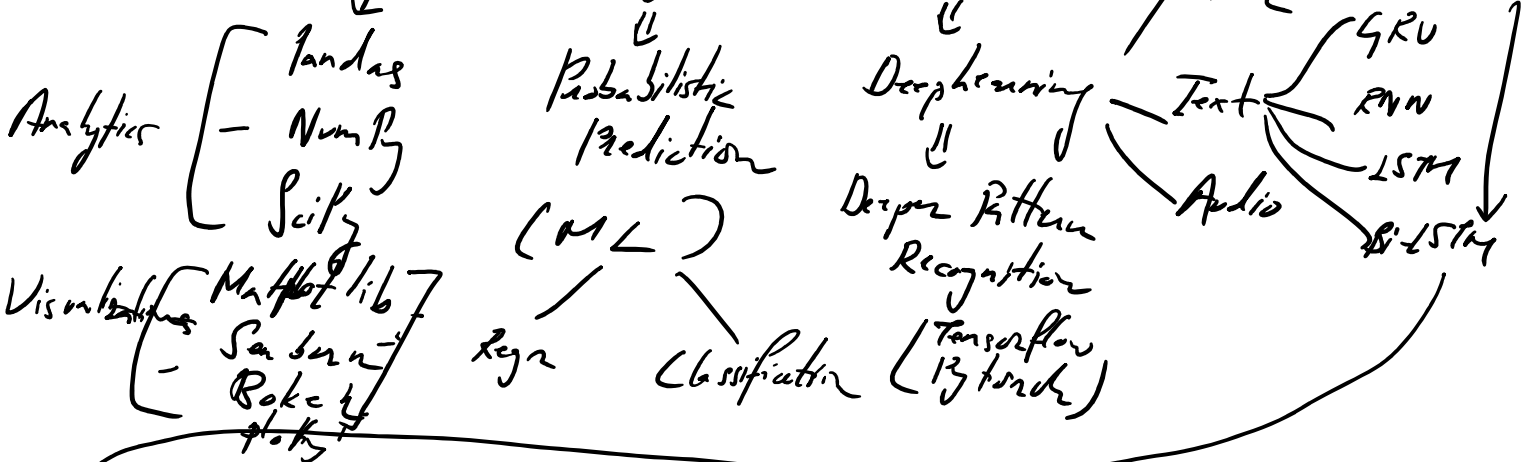 Analytics
Pandas
NumPy
SciPy
Visualizations
Matplotlib
Seaborn
Bokeh
Plotly
Probabilistic
Prediction
(ML)
Regn
Classification
Deep Learning
Deeper Pattern
Recognition
(Tensorflow
Pytorch)
Text
Audio
GRU
RNN
LSTM
Bi-LSTM